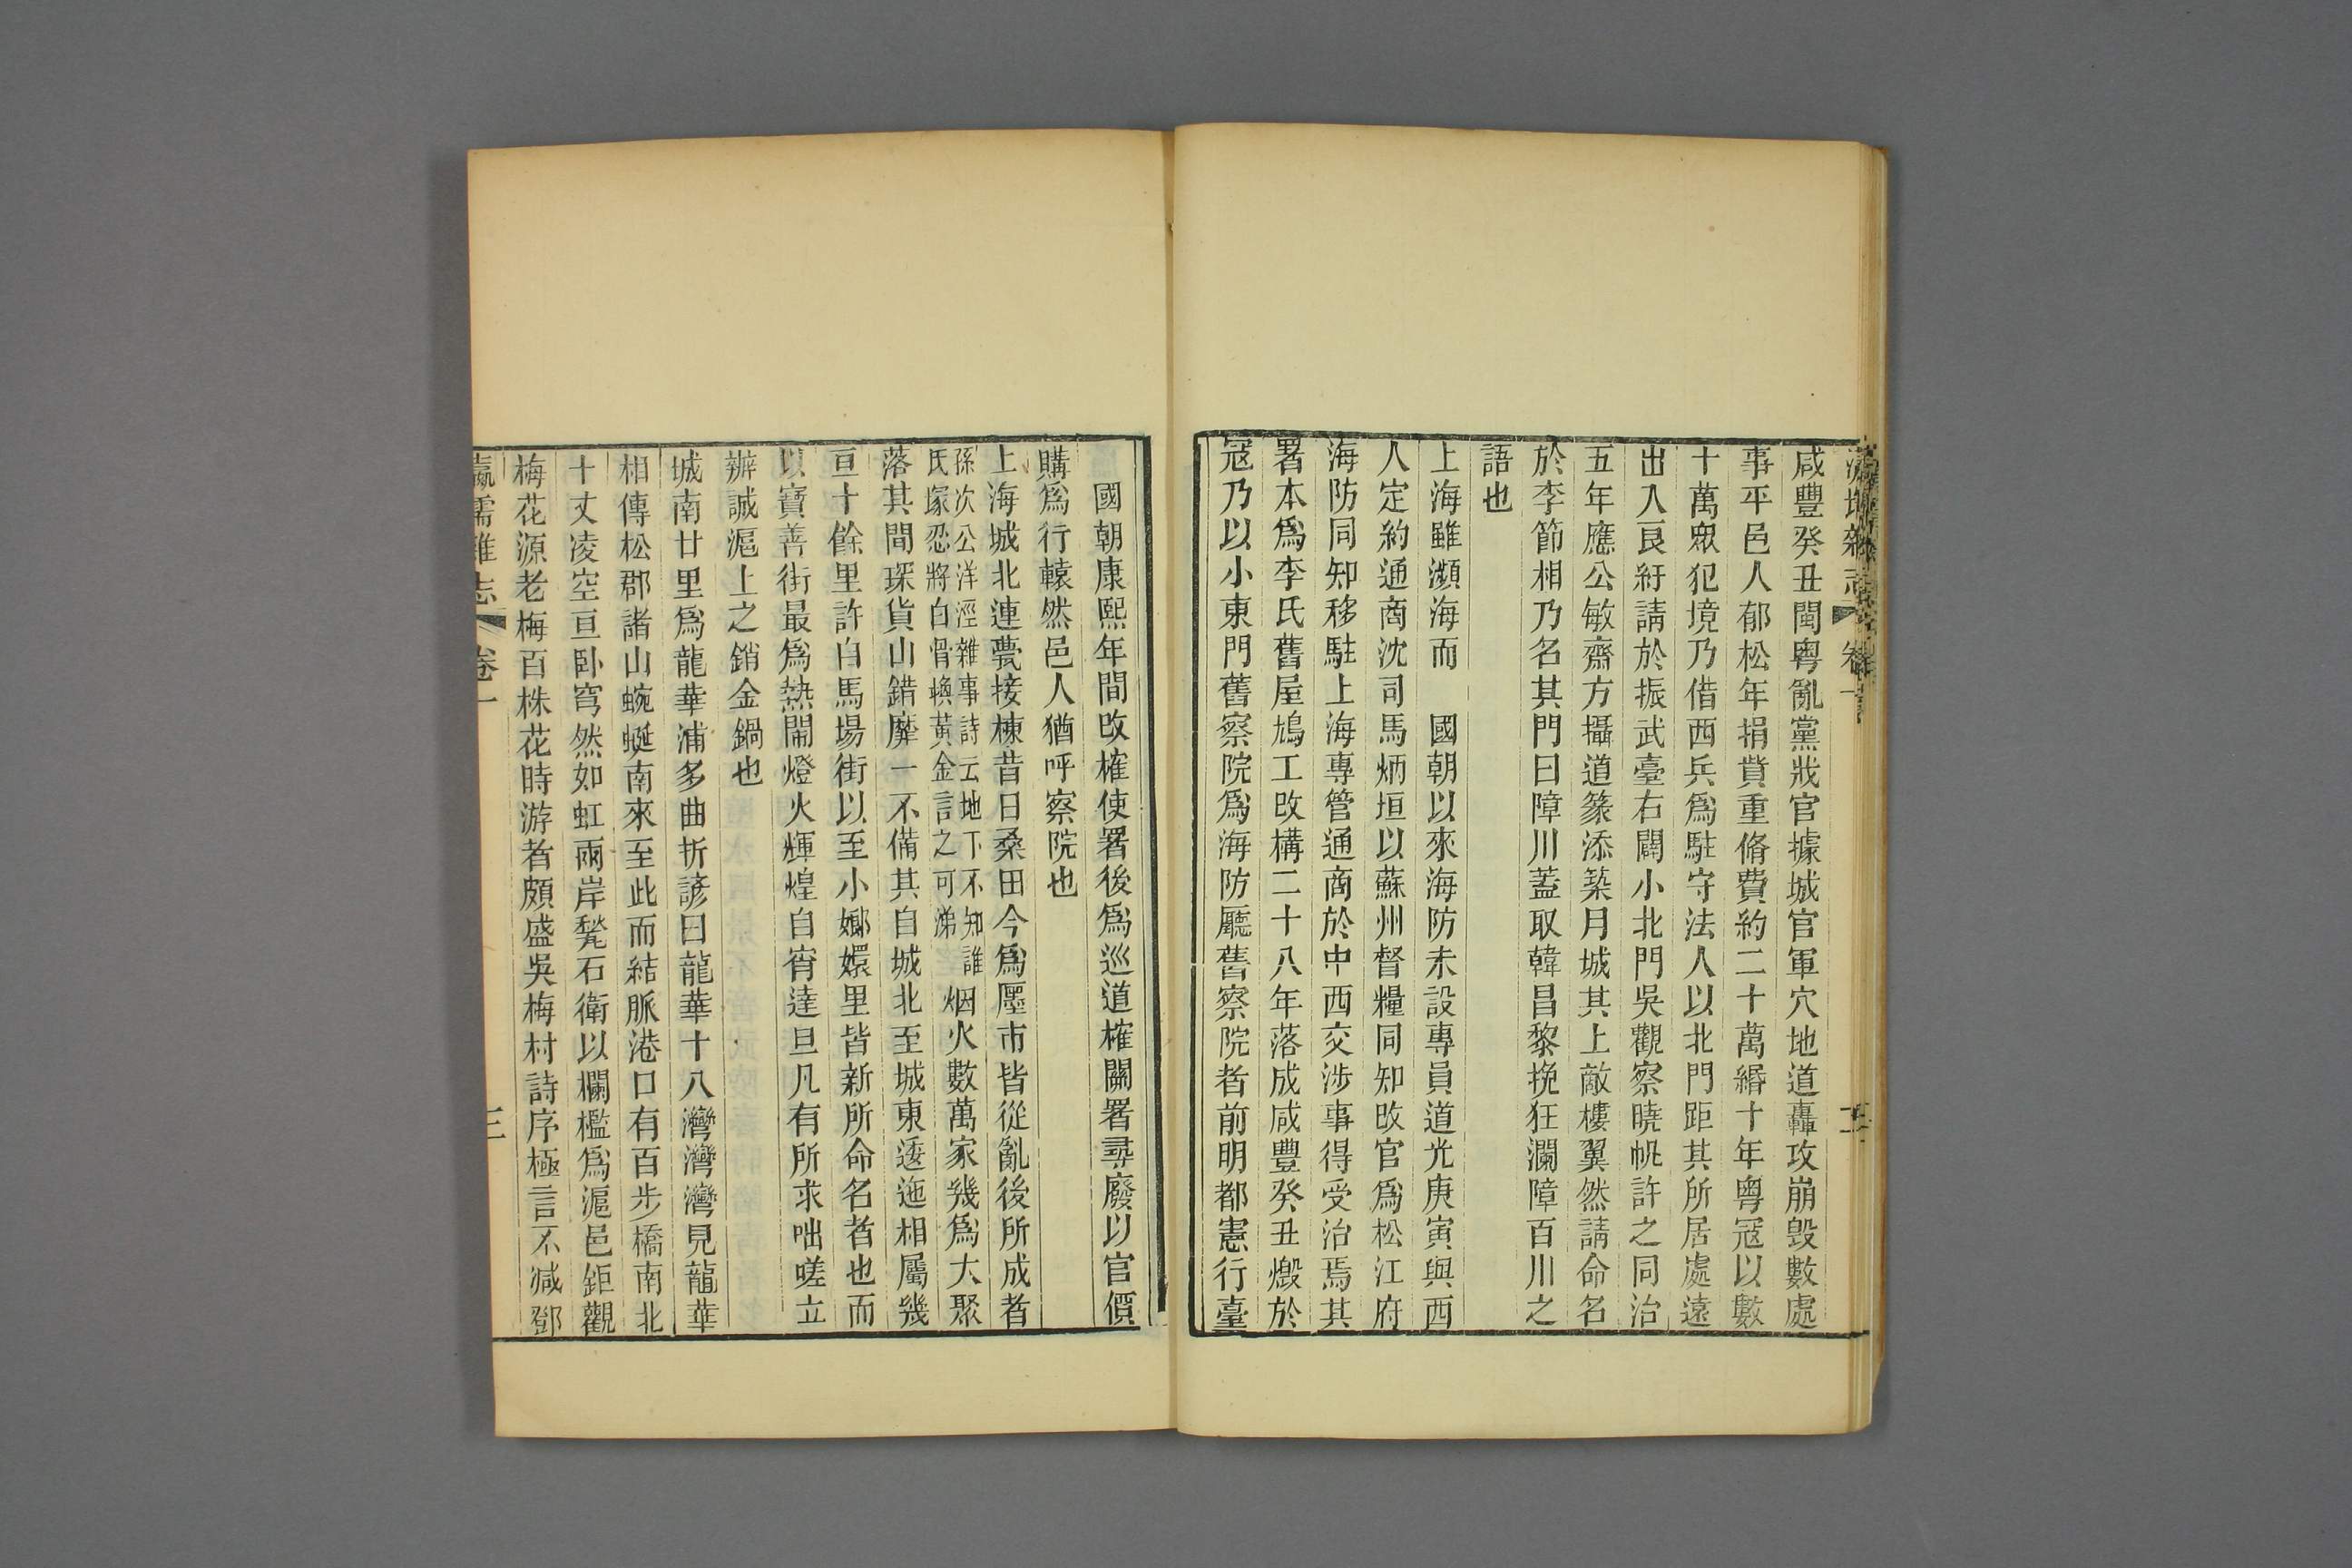 咸豐癸丑閩粵亂黨戕官據城官軍穴地道轟攻崩毀數處
事平邑人郁松年捐貲重脩費約二十萬緡十年粵寇以數
十萬眾犯境乃借西兵爲駐守法人以北門距其所居處遠
出入艮紆請於振武臺右闢小北門吳觀察曉帆許之同治
五年應公敏齋方攝道篆添築月城其上敵樓翼然請命名
於李節相乃名其門曰障川蓋取韓昌黎挽狂瀾障百川之
語也
上海雖瀕海而　國朝以來海防未設專員道光庚寅與西
人定約通商沈司馬炳垣以蘇州督糧同知改官爲松江府
海防同知移駐上海專管通商於中西交涉事得受治焉其
署本爲李氏舊屋鳩工改構二十八年落成咸豐癸丑燬於
寇乃以小東門舊察院爲海防廳舊察院者前明都憲行臺
國朝康熙年間改榷使署後爲巡道榷關署尋廢以官價
購爲行轅然邑人猶呼察院也
上海城北連甍接棟昔日桑田今爲廛市皆從亂後所成者
孫次公洋涇雜事詩云地下不知誰
氏塚忍將白骨換黃金言之可涕
烟火數萬家幾爲大聚
落其間琛貨山錯靡一不備其自城北至城東逶迤相屬幾
亘十餘里許自馬場街以至小嫏嬛里皆新所命名者也而
以寶善街最爲熱鬧燈火輝煌自宵達旦凡有所求咄嗟立
辦誠滬上之銷金鍋也
城南廿里爲龍華浦多曲折諺曰龍華十八灣灣灣見龍華
相傳松郡諸山蜿蜒南來至此而結脈港口有百步橋南北
十丈凌空亘臥穹然如虹兩岸甃石衛以欄檻爲滬邑鉅觀
梅花源老梅百株花時游者頗盛吳梅村詩序極言不減鄧
瀛壖雜志　卷一　三